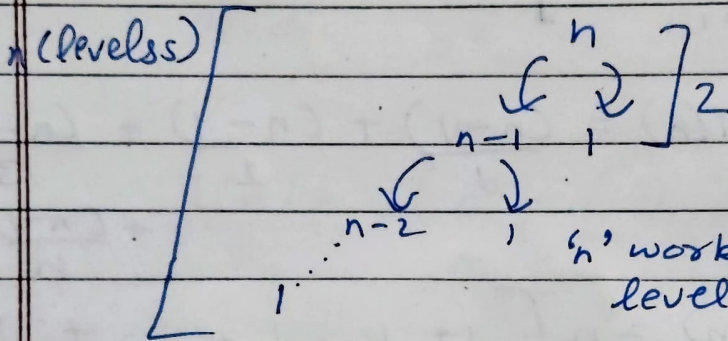 n (levelss)
n
2
n-1 1
n-2 1
'n' work
1
level